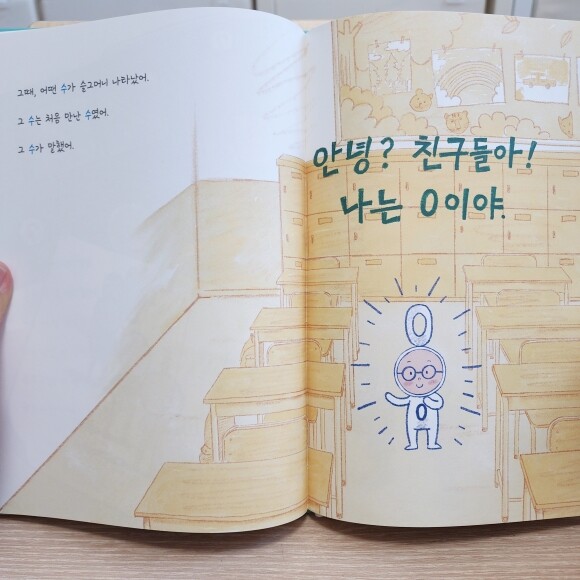 그때, 어떤 수가 슬그머니 나타났어.
그 수는 처음 만난 수였어.
그 수가 말했어.
안녕? 친구들아!
나는 0이야.
0
0